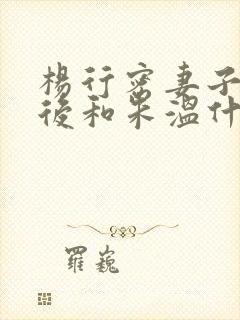 楊行密妻子
後和朱溫什
羅巍